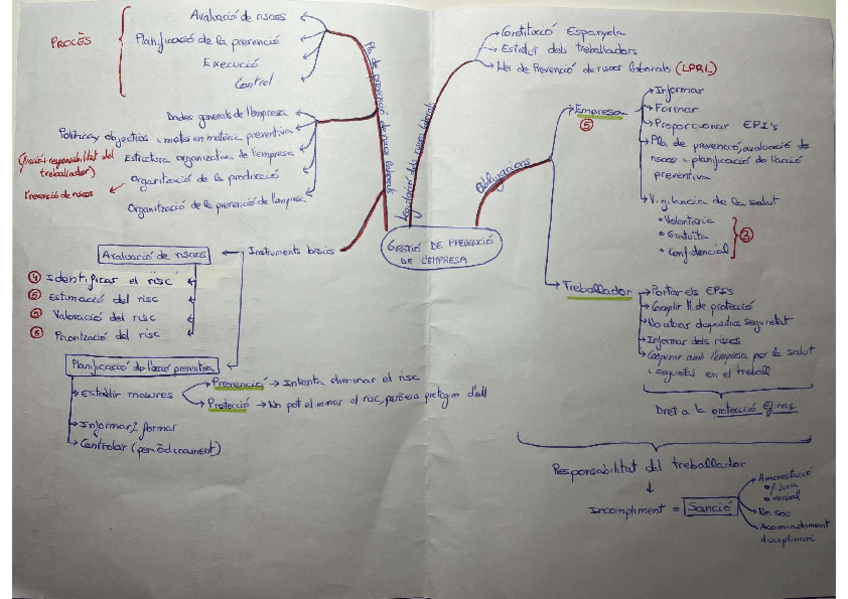 PROCÈS
Avaluació de riscos
Planificació de la prevenció
Execució
Control
Pla de prevenció de riscos laborals
Dades generals de l'empresa
Política, objectius i metes en matèria preventiva
Estructura organizativa de l'empresa
(funció i responsabilitat del
treballador)
Organització de la producció
Organització de la prevenció de l'empresa
Prevenció de riscos
Instruments bàsics
Avaluació de riscos
Identificar el risc
Estimació del risc
Valoració del risc
Priorització del risc
Planificació de l'acció preventiva
Establir mesures
Prevenció → Intenta eliminar el risc
Protecció → No pot eliminar el risc, però ens protegim d'ell
Informar i formar
Controlar (periòdicament)
GESTIÓ DE PREVENCIÓ
DE L'EMPRESA
Legislació dels riscos laborals
Constitució Espanyola
Estatut dels treballadors
Llei de Prevenció de riscos laborals (LPRL)
Obligacions
Empresa
5
Informar
Formar
Proporcionar EPI's
Pla de prevenció, avaluació de
riscos i planificació de l'acció
preventiva
Vigilància de la salut
• Voluntària
• Gratuïta
• Confidencial
3
Treballador
Portar els EPI's
Complir M. de protecció
No utilitzar dispositius seguretat
Informar dels riscos
Cooperar amb l'empresa per la salut
i seguretat en el treball
Dret a la protecció Eficaç
Responsabilitat del treballador
Incompliment = Sanció
Amonestació
• física
• verbal
No sou
Acomiadament
disciplinari